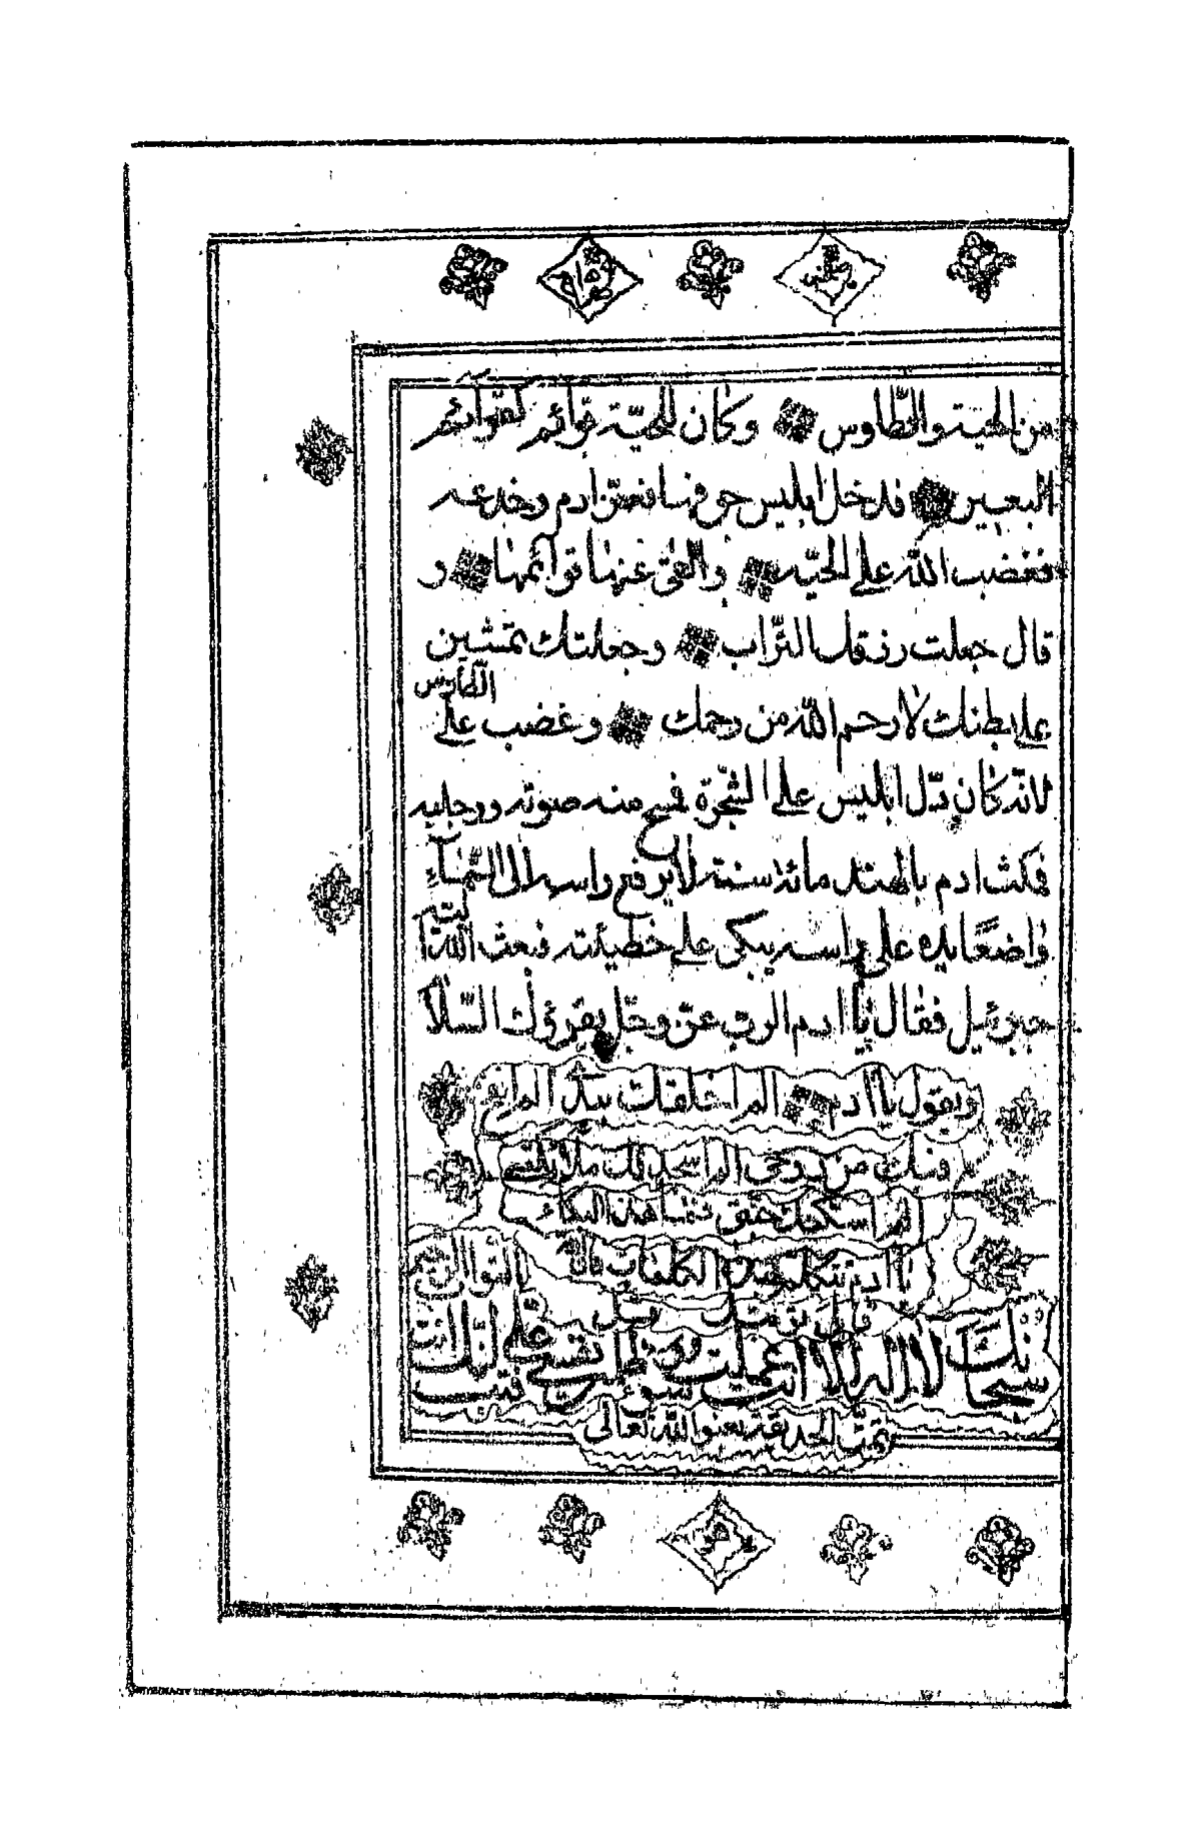 من الحية والطّاوس وكان للحيّة قوائم كقوآئم
البعير فدخل ابليس جوفها فغرّ ادم وخدعه
فغضب الله على الحيّه والقى عنها قوائمها و
قال جعلت رزقك التّراب وجعلتك تمشين
على بطنك لا رحم الله من رحمك وغضب على الطاوس
لانّه كان دّل ابليس على الشّجرة فمسح منه صوته ورجليه
فمكث ادم بالهند مائة سنة لا يرفع راسه الى السّمآء
واضعًا يده على راسه يبكى على خطيئته فبعث الله اليه
جبرئيل فقال يا ادم الرب عزّ وجلّ يقرؤك السّلا
ويقول يا ادم الم اخلقك بيدى الم
فيك من روحى الم اسجد لك ملائكتى
الم فما هذا البكاء
يا ادم تكلم بهذه الكلمات فان
قابل توبتك
سبحانك لا اله الا انت عملت سوء وظلمت نفسى فتب على انّك انت
تمّت الحديقة بعون الله تعالى